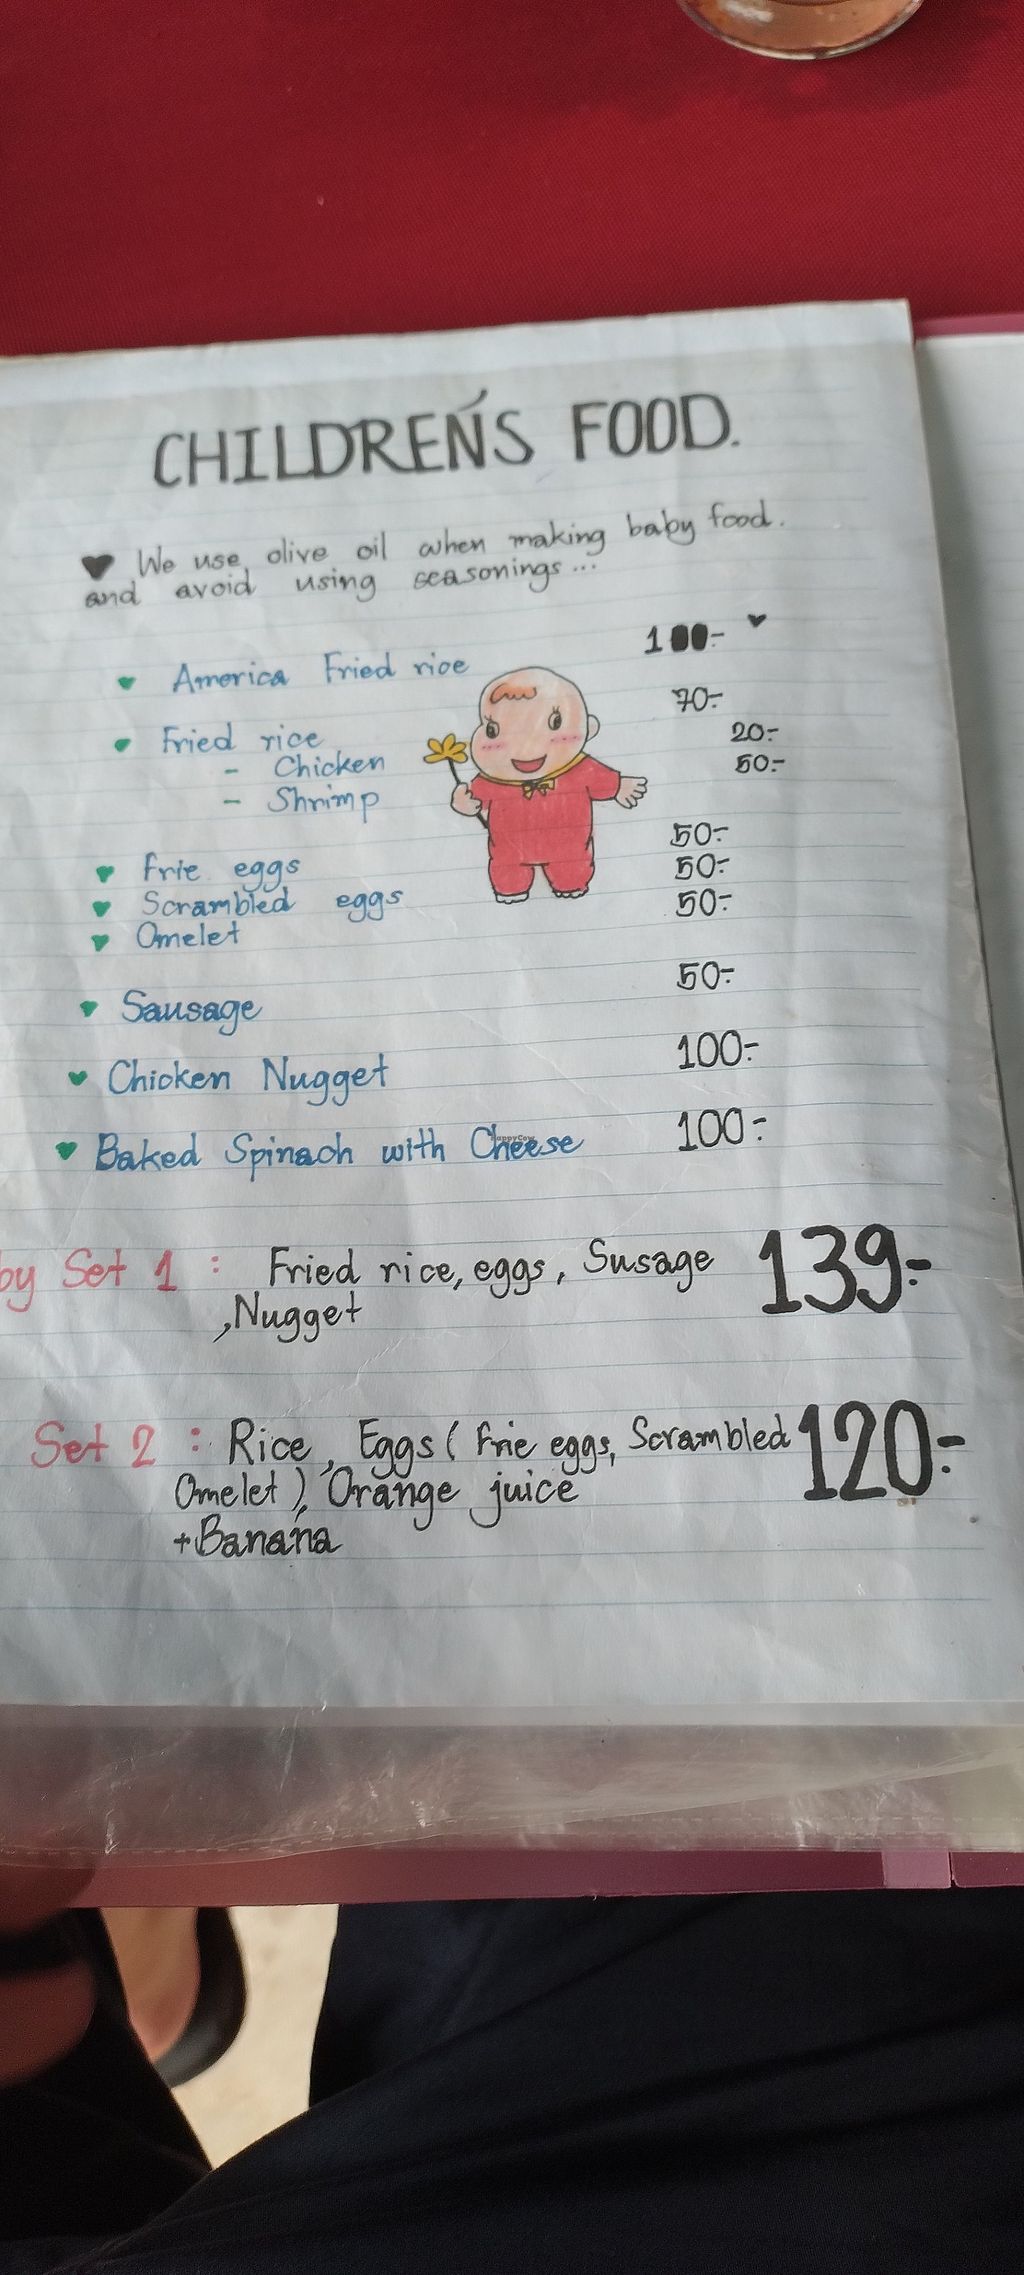 CHILDREN'S FOOD.
♥ We use olive oil when making baby food.
and avoid using seasonings...
♥ America Fried rice 100.- ♥
♥ Fried rice 70.-
- Chicken 20.-
- Shrimp 50.-
♥ Frie eggs 50.-
♥ Scrambled eggs 50.-
♥ Omelet 50.-
♥ Sausage 50.-
♥ Chicken Nugget 100.-
♥ Baked Spinach with Cheese 100.-
HappyCow
by Set 1 : Fried rice, eggs, Susage 139.-
,Nugget
Set 2 : Rice, Eggs ( Frie eggs, Scrambled 120.-
Omelet ), Orange juice
+Banana